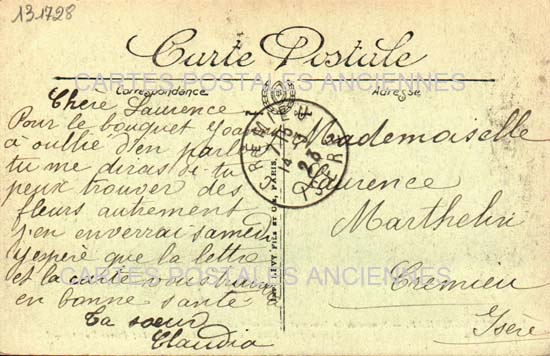 131728
Carte Postale
CARTES POSTALES ANCIENNES
Correspondance
Adresse
Chère Laurence
Pour le bouquet
a oublié d'en parler
tu me dirais si tu
peux trouver des
fleurs autrement
j'en enverrai samedi
j'espère que la lettre
et la carte vous
en bonne santé
Ta soeur
Claudia
CREMIEU
23
ISERE
LÉVY FILS ET Cie, PARIS
Mademoiselle
Laurence
Marthelin
Cremieu
Isère
CARTES POSTALES ANCIENNES